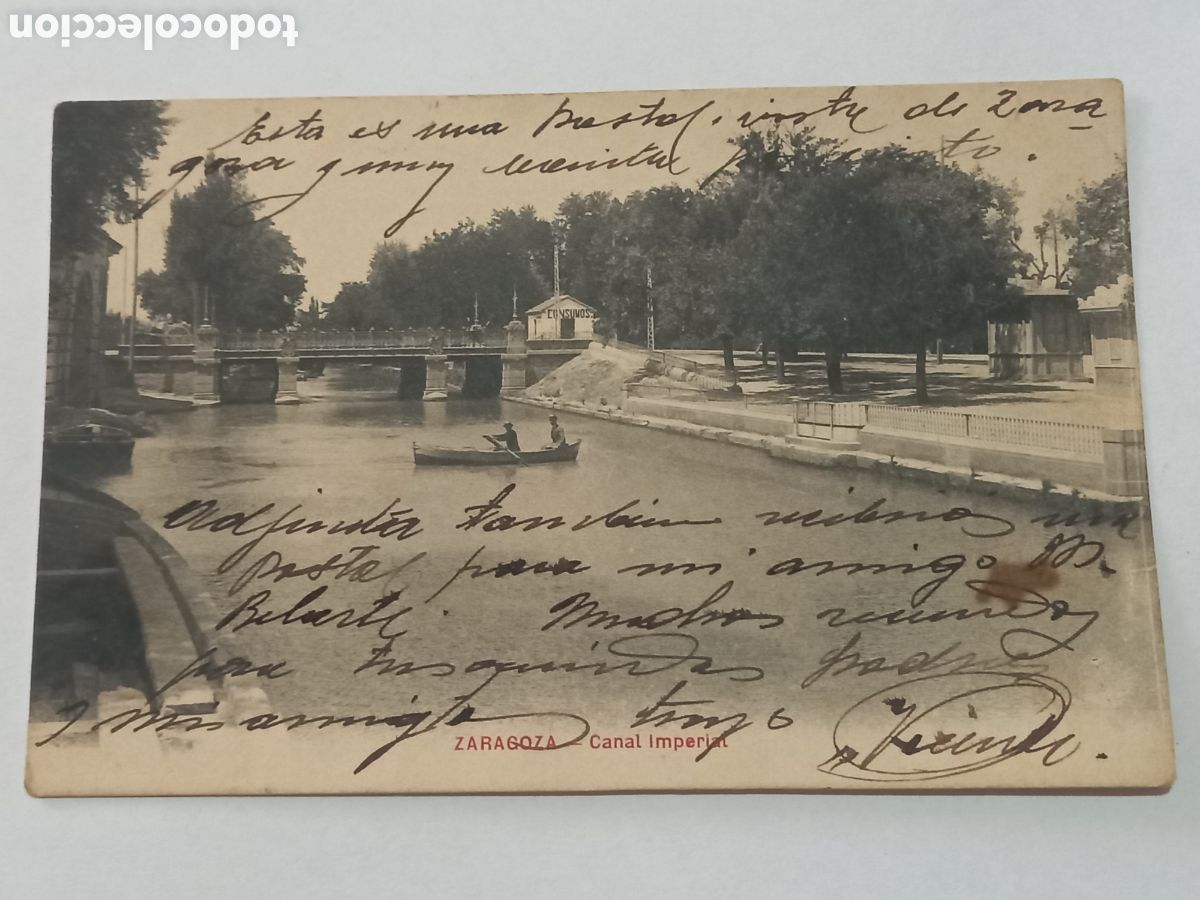 todocoleccion
Esta es una postal, vista de Zara
goza y muy bonita por cierto.
CONSUMOS
Adjunta tambien recibiras una
postal para mi amigo
Belarte. Muchos recuerdos
para tus queridos padres
y mi amigta tuyo Vicente.
ZARAGOZA – Canal Imperial